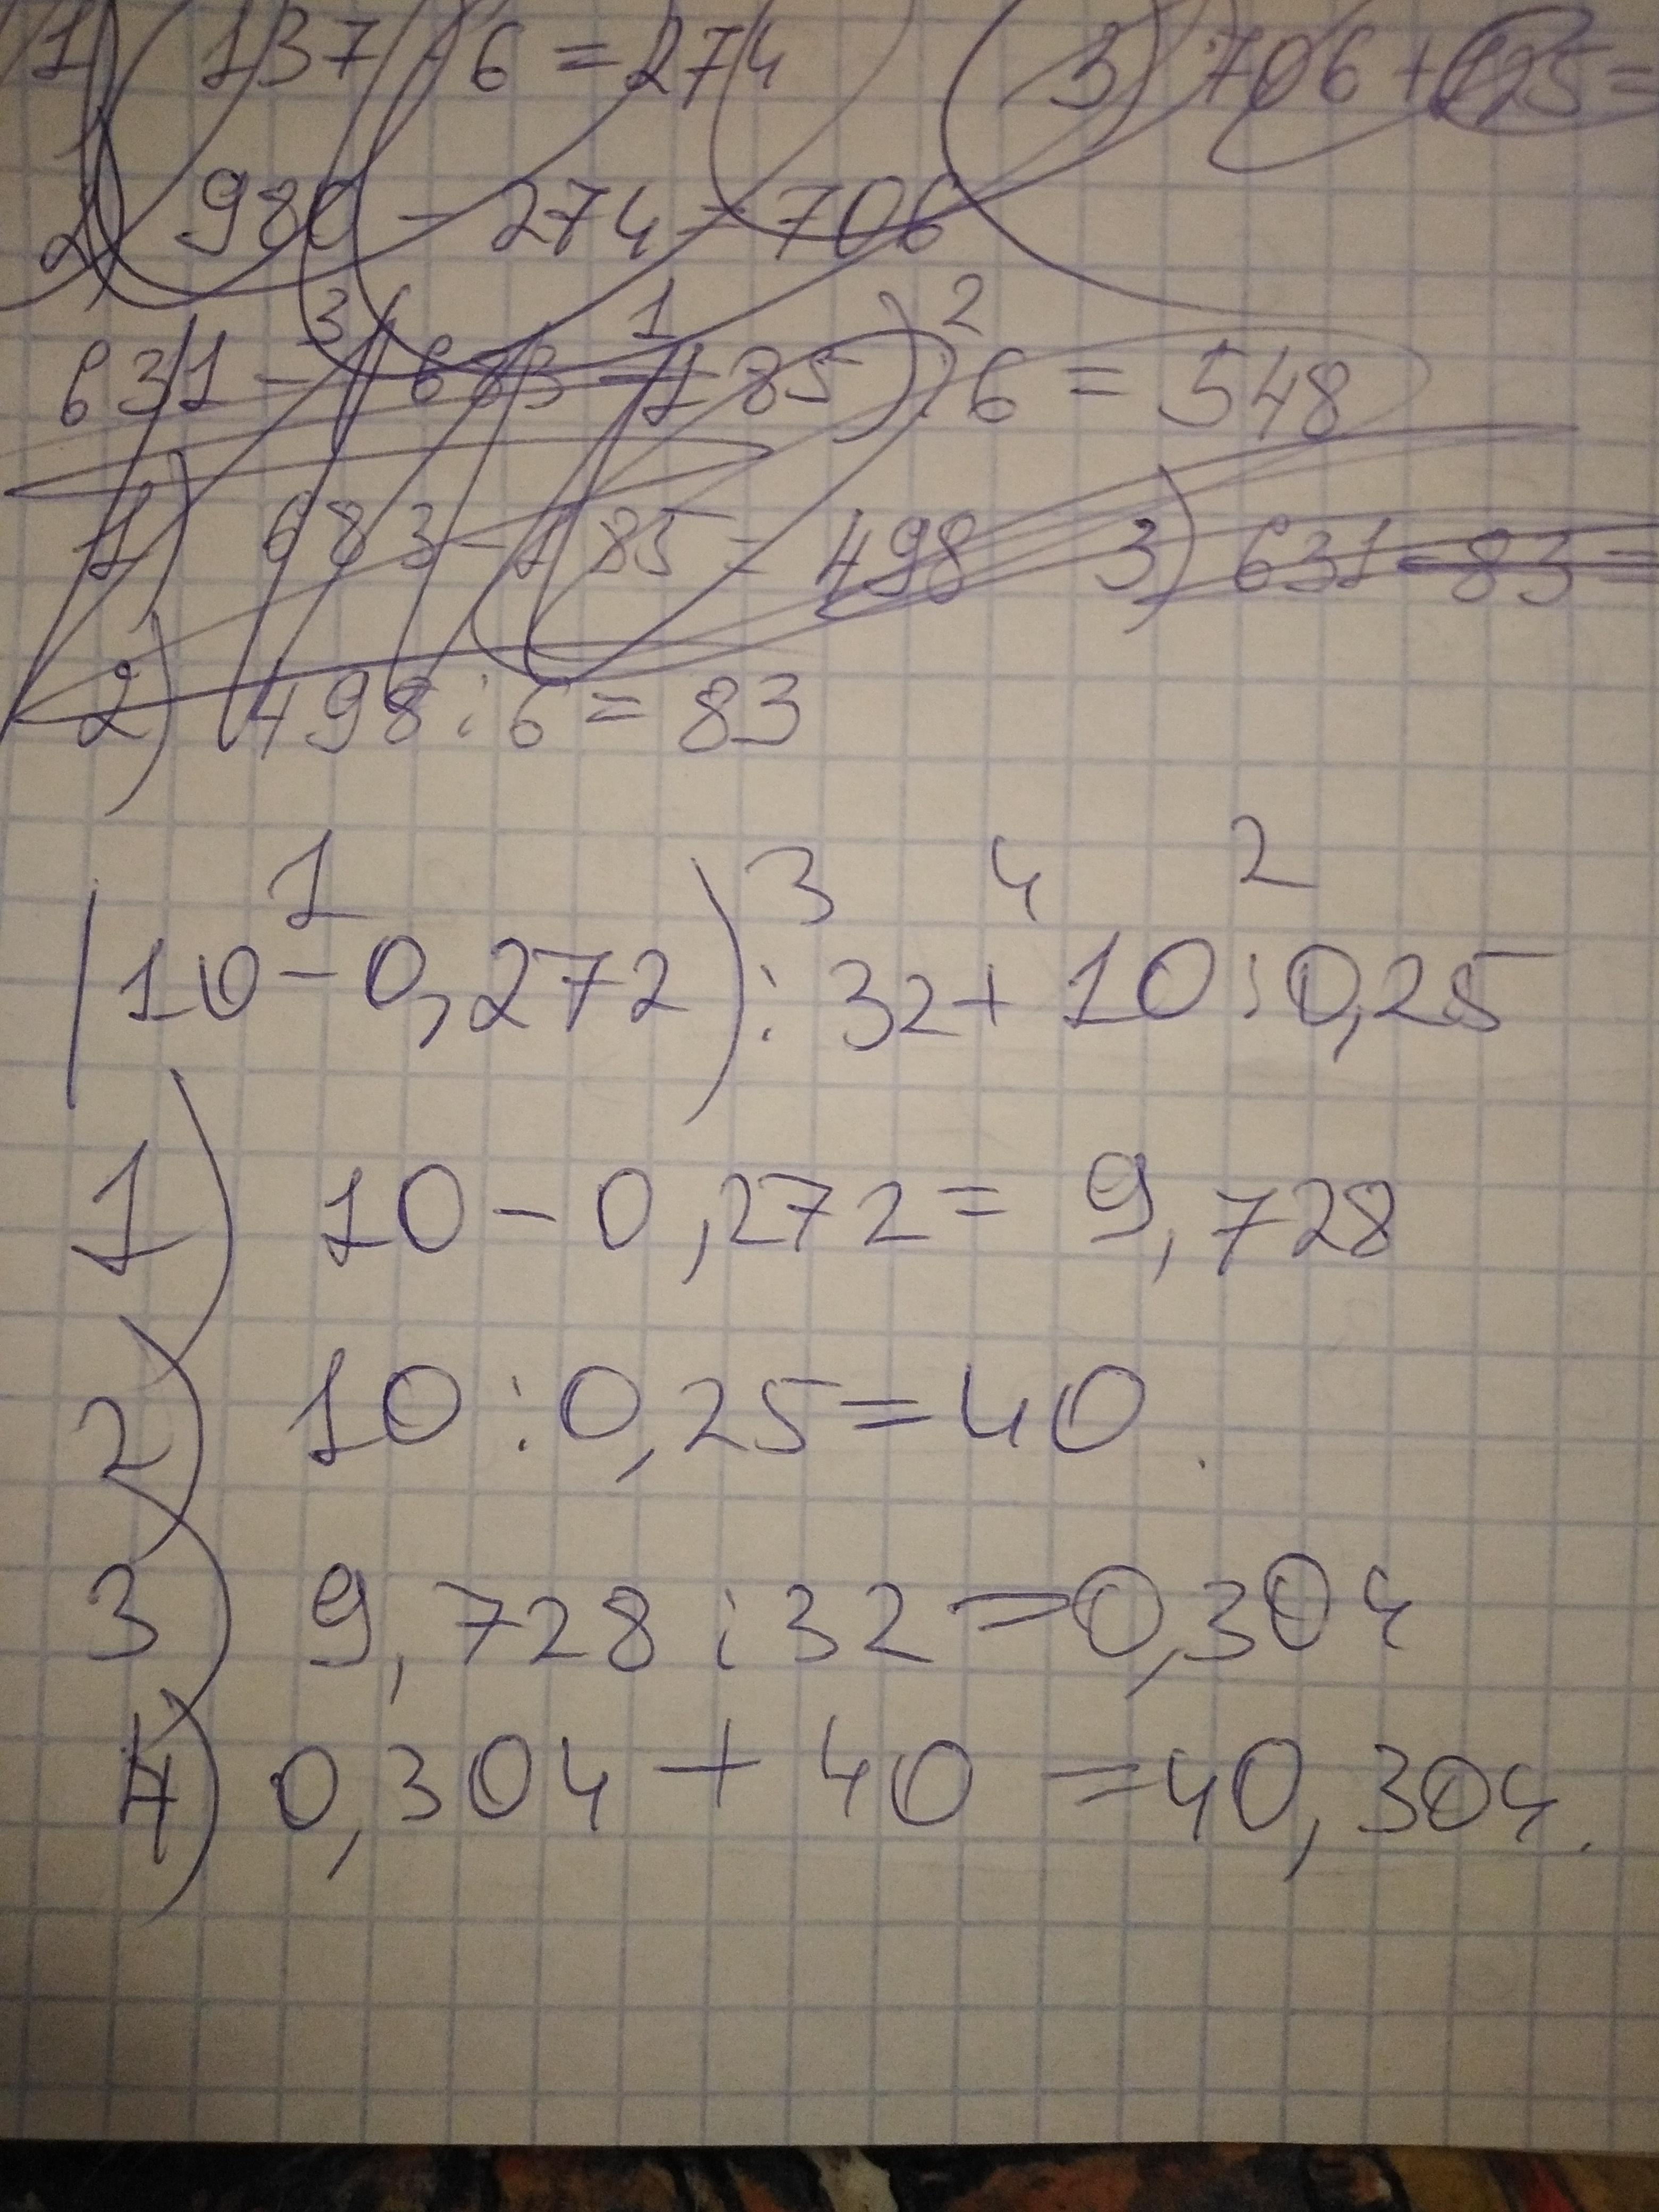 1) 137 · 6 = 274 3) 706 + 125 =
2) 980 - 274 = 706
3 1 2
631 - (683 - 185) : 6 = 548
1) 683 - 185 = 498 3) 631 - 83 =
2) 498 : 6 = 83
1 3 4 2
(10 - 0,272) : 32 + 10 : 0,25
1) 10 - 0,272 = 9,728
2) 10 : 0,25 = 40
3) 9,728 : 32 = 0,304
4) 0,304 + 40 = 40,304.